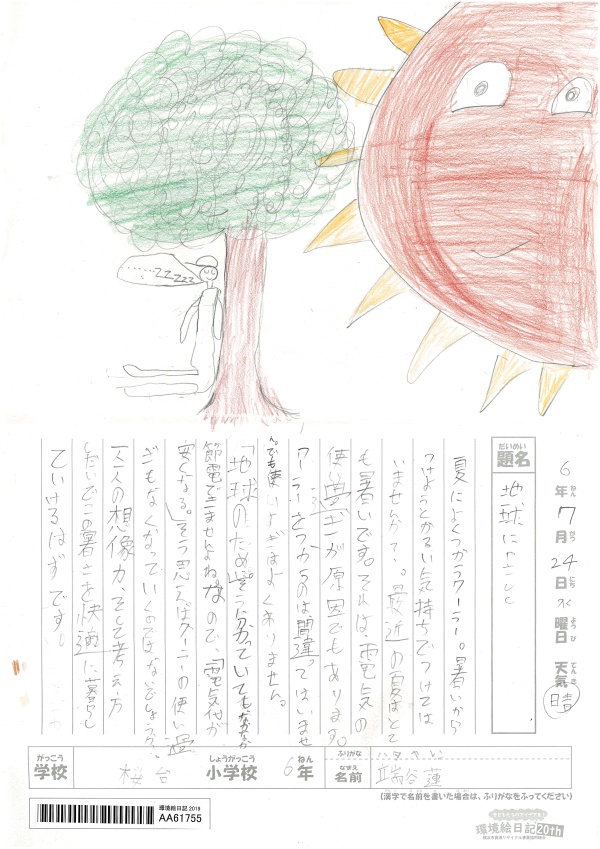 ‥‥‥ZZZZZ
6年7月24日水曜日 天気 晴
ねん がつ にち ようび てんき
だいめい
題名
地球にやさしく
夏によくつかうクーラー。暑いから
つけようとかるい気持ちでつけては
いませんか?。最近の夏はとて
も暑いです。それは、電気の
使い過ぎが原因でもあります。
クーラーをつかうのは間違ってはいませ
ん。でも使いすぎはよくありません。
「地球のため」そう分っていてもなかなか
節電できませんよね。なので、電気代が
安くなる。そう思えばクーラーの使い過
ぎもなくなっていくのではないでしょうか。
一人一人の想像力、そして考え方
しだいでこの暑さを快適に暮らし
ていけるはずです。
がっこう
学校
桜台
しょうがっこう
小学校
6年
ねん
ふりがな
なまえ
名前
谷 蓮
(漢字で名前を書いた場合は、ふりがなをふってください)
環境絵日記2019
AA61755
環境絵日記20th